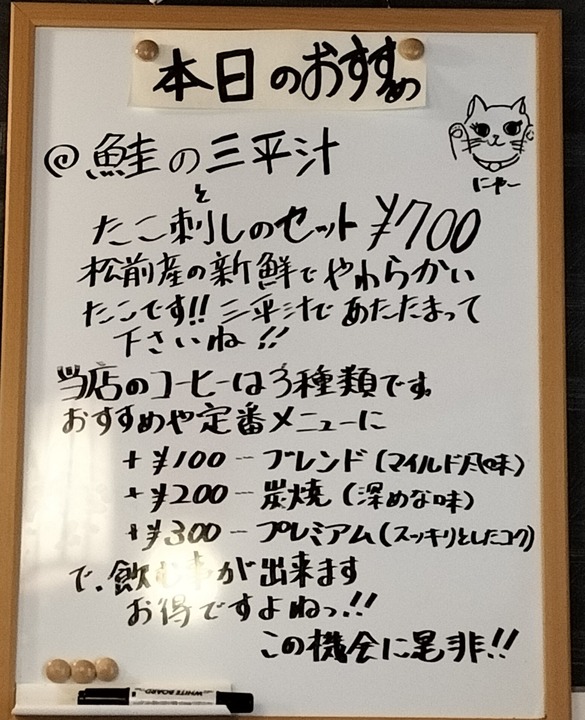 本日のおすすめ
@鮭の三平汁
と
にゃー
たこ刺しのセット ¥700
松前産の新鮮でやわらかい
たこです!! 三平汁であたたまって
下さいね!!
当店のコーヒーは3種類です。
おすすめや定番メニューに
+¥100 ― ブレンド(マイルド風味)
+¥200 ― 炭焼(深めな味)
+¥300 ― プレミアム(スッキリとしたコク)
で、飲む事が出来ます
お得ですよねっ!!
この機会に是非!!
WHITE BOARD